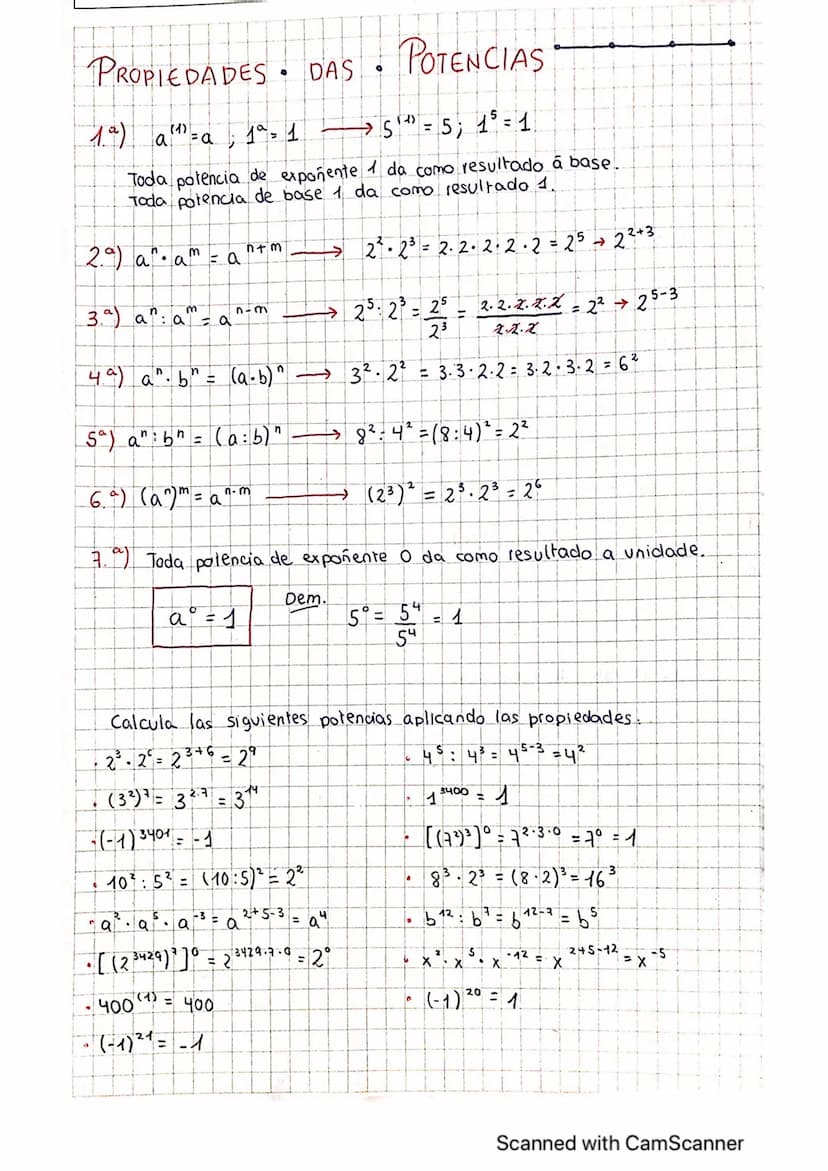 PROPIEDADES • DAS • POTENCIAS
1.ª) a⁽¹⁾=a ; 1ᵃ=1 ⟶ 5⁽¹⁾ = 5; 1⁵ = 1
Toda potencia de expoñente 1 da como resultado á base.
Toda potencia de base 1 da como resultado 1.
2.ª) aⁿ · aᵐ = aⁿ⁺ᵐ ⟶ 2² · 2³ = 2·2·2·2·2 = 2⁵ → 2²⁺³
3.ª) aⁿ : aᵐ = aⁿ⁻ᵐ ⟶ 2⁵ : 2³ = 2⁵/2³ = 2·2·2·2·2/2·2·2 = 2² → 2⁵⁻³
4ª) aⁿ · bⁿ = (a·b)ⁿ ⟶ 3² · 2² = 3·3·2·2 = 3·2·3·2 = 6²
5ª) aⁿ : bⁿ = (a:b)ⁿ ⟶ 8² : 4² = (8:4)² = 2²
6.ª) (aⁿ)ᵐ = aⁿ·ᵐ ⟶ (2³)² = 2³ · 2³ = 2⁶
7.ª) Toda potencia de expoñente 0 da como resultado a unidade.
a⁰ = 1 Dem. 5⁰ = 5⁴/5⁴ = 1
Calcula las siguientes potencias aplicando las propiedades.
· 2³ · 2⁶ = 2³⁺⁶ = 2⁹ · 4⁵ : 4³ = 4⁵⁻³ = 4²
· (3²)⁷ = 3²·⁷ = 3¹⁴ · 1³⁴⁰⁰ = 1
· (-1)³⁴⁰¹ = -1 · [(7²)³]⁰ = 7²·³·⁰ = 7⁰ = 1
· 10² : 5² = (10:5)² = 2² · 8³ · 2³ = (8·2)³ = 16³
· a² · a⁵ · a⁻³ = a²⁺⁵⁻³ = a⁴ · b¹² : b⁷ = b¹²⁻⁷ = b⁵
· [(2³⁴²⁹)⁷]⁰ = 2³⁴²⁹·⁷·⁰ = 2⁰ · x² · x⁵ · x⁻¹² = x²⁺⁵⁻¹² = x⁻⁵
· 400⁽¹⁾ = 400 · (-1)²⁰ = 1
· (-1)²¹ = -1
Scanned with CamScanner